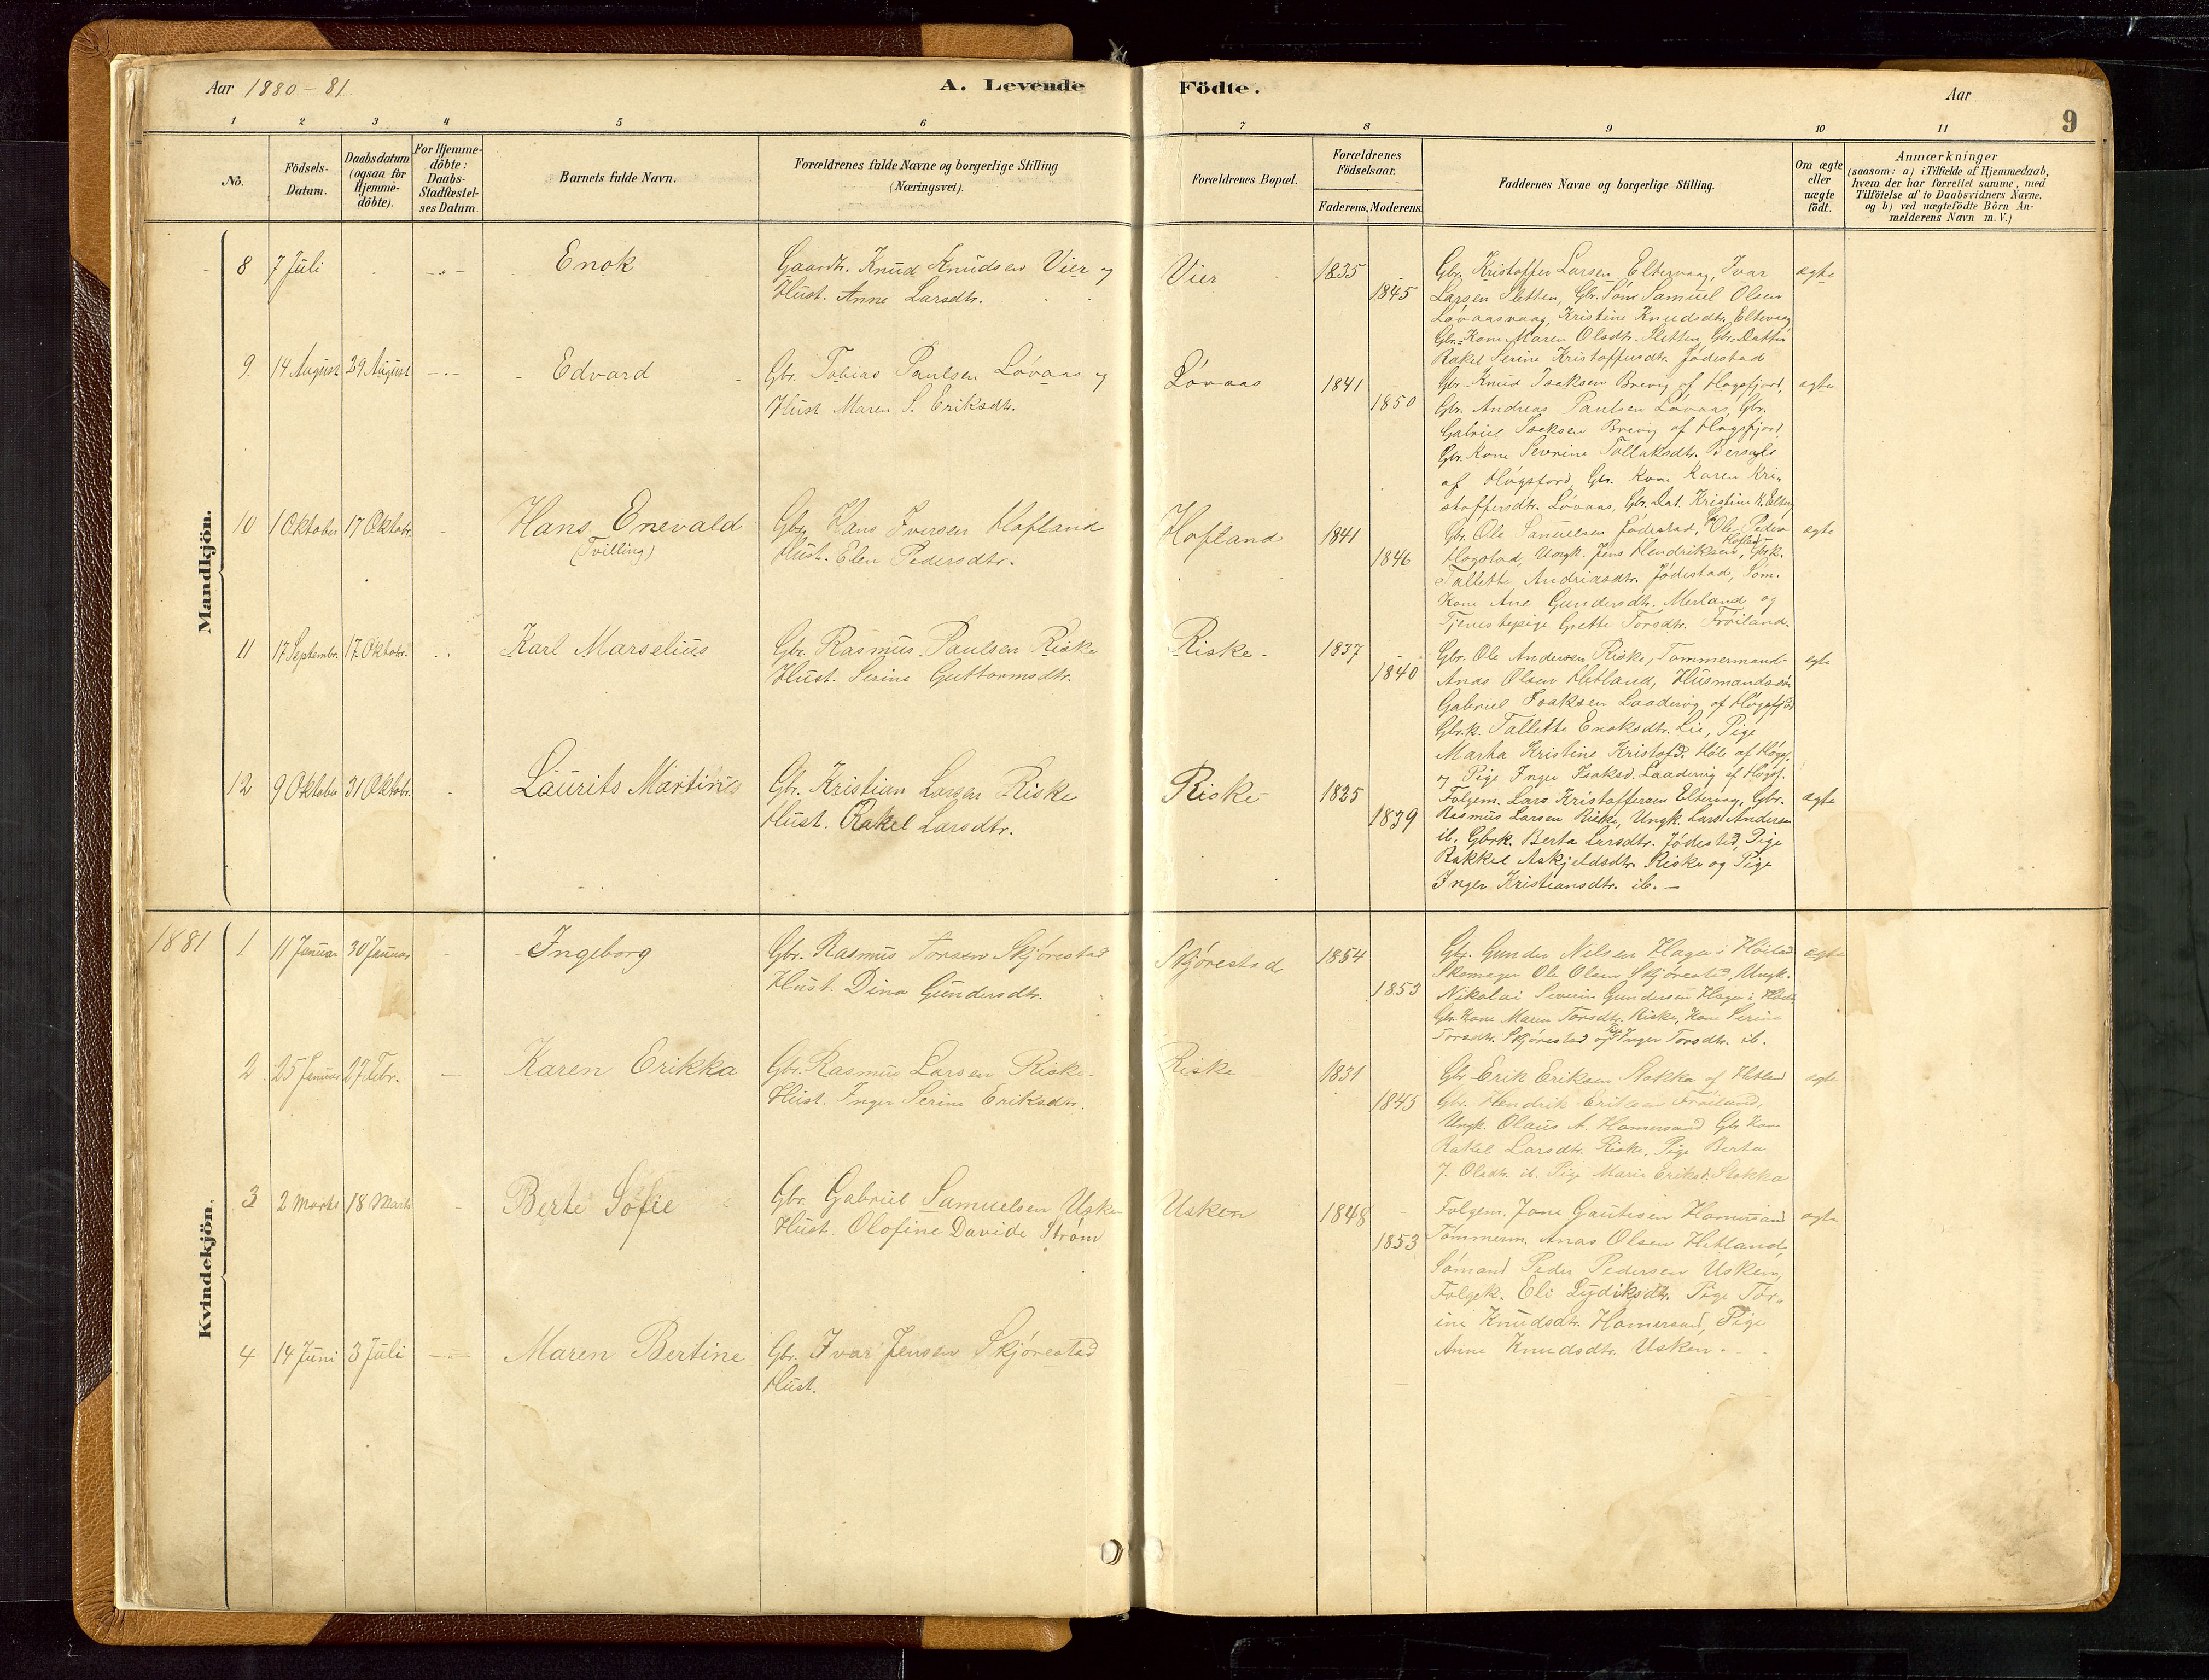 Aar 1880-81
A. Levende Födte.
Aar
9
1 2 3 4 5 6 7 8 9 10 11
No.
Födsels-Datum.
Daabsdatum (ogsaa for Hjemme-döbte).
For Hjemme-döbte: Daabs-Stadfæstel-ses Datum.
Barnets fulde Navn.
Forældrenes fulde Navne og borgerlige Stilling (Næringsvei).
Forældrenes Bopæl.
Forældrenes Födselsaar.
Faderens. Moderens.
Faddernes Navne og borgerlige Stilling.
Om ægte eller uægte födt.
Anmærkninger
(saasom: a) i Tilfælde af Hjemmedaab,
hvem der har forrettet samme, med
Tilföielse af to Daabsvidners Navne.
og b) ved uægtefödte Börn An-
melderens Navn m. V.)
Mandkjön.
8 7 Juli Enok Gaardb. Knud Knudsen Vier og Vier 1835 Gbr. Kristoffer Larsen Eltervaag, Ivar ægte
Hust. Anne Larsdtr. 1845 Larsen Sletten, Gbr. Søn Samuel Olsen
Løvaasvaag, Kristine Knudsdtr. Eltevaag
Gbr. Kone Maren Olsdtr. Sletten, Gbr. Datter
Rakel Serine Kristoffersdtr. Jødestad
9. 14 August 29 August Edvard Gbr. Tobias Paulsen Løvaas og Løvaas 1841 Gbr. Knud Isaksen Brevig af Høgsfjord, ægte
Hust. Maren S. Eriksdtr. 1850 Gbr. Andreas Paulsen Løvaas, Gbr.
Gabriel Isaksen Brevig af Høgsfjord
Gbr. Kone Severine Tollaksdtr. Bersagel
af Høgsfjord, Gbr. Kone Karen Kri-
stoffersdtr. Løvaas, Gbr. Dat. Kristine K.
10 1 Oktober 17 Oktobr. Hans Enevald Gbr. Hans Iversen Hofland Hofland 1841 Gbr. Ole Samuelsen Jødestad, Ole Peders. ægte
(Tvilling) Hust. Elen Pedersdtr. 1846 Hogstad, Ungk. Jens Hendriksen Hofland, Gbrk.
Tallette Andreasdtr. Jødestad, Søm.
Kone Ane Gundersdtr. Merland og
Tjenestepige Grette Torsdtr. Frøiland.
11 17 Septembr. 17 Oktobr. Karl Marselius Gbr. Rasmus Paulsen Riske Riske 1837 Gbr. Ole Andersen Riske, Tømmermand ægte
Hust. Serine Guttormsdtr. 1840 Anas Olsen Hetland, Husmandssøn
Gabriel Isaksen Laadervig af Høgsfjord
Gbr.k. Tallette Enoksdtr. Lie, Pige
Marta Kristine Kristofd. Høle af Høgsf.
og Pige Inger Isaksd. Laadervig af Høgsf.
12 9 Oktober 31 Oktobr. Laurits Martinus Gbr. Kristian Larsen Riske Riske 1825 Følgem. Lars Kristoffersen Eltervaag, Gbr. ægte
Hust. Rakel Larsdtr. 1839 Rasmus Larsen Riske, Ungk. Lars Andersen
ib. Gbrk. Berta Larsdtr. Jødestad, Pige
Rakkel Askjeldsdtr. Riske og Pige
Inger Kristiansdtr. ib. -
Kvindekjön.
1881 1 11 Januar 30 Januar Ingeborg Gbr. Rasmus Torsen Skjørestad Skjørestad 1854 Gbr. Gunder Nilsen Hage i Høiland ægte
Hust. Dina Gundersdtr. 1853 Skomager Ole Olsen Skjørestad, Ungk.
Nikolai Severin Gundersen Hage i
Gbr. Kone Maren Torsdtr. Riske, Kone Serine
Torsdtr. Skjørestad og Pige Inger Torsdtr. ib.
2 25 Januar 27 Febr. Karen Erikka Gbr. Rasmus Larsen Riske Riske 1831 Gbr. Erik Eriksen Stokka af Hetland ægte
Hust. Inger Serine Eriksdtr. 1845 Gbr. Hendrik Eriksen Frøiland,
Ungk. Olaus A. Hamersand Gbr. Kone
Rakel Larsdtr. Riske, Pige Berta
J. Olsdtr. ib. Pige Maria Eriksd. Stokka
3 2 Marts 18 Marts Berte Sofie Gbr. Gabriel Samuelsen Usken Usken 1848 Følgem. Jone Gautesen Hamersand ægte
Hust. Olofine Davide Strøm 1853 Tømmerm. Anas Olsen Hetland,
Sømand Peder Pedersen Usken,
Følgek. Eli Lydiksdtr. Pige Tor-
ine Knudsdtr. Hamersand, Pige
Anne Knudsdtr. Usken.
4 14 Juni 3 Juli Maren Bertine Gbr. Ivar Jensen Skjørestad
Hust.